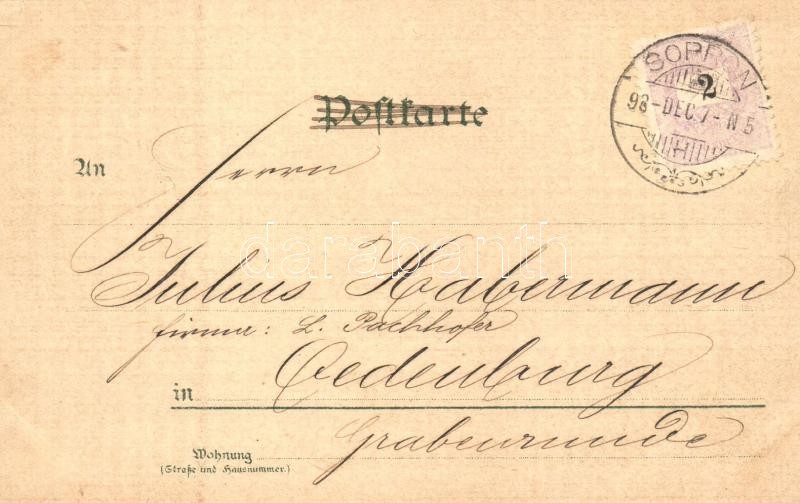 Postkarte
SOPRON
2
98-DEC.7-N5
An Herrn
Julius Habermann
firma: L. Pachhofer
in Oedenburg
Grabenrunde
Wohnung
(Straße und Hausnummer.)
darabanth